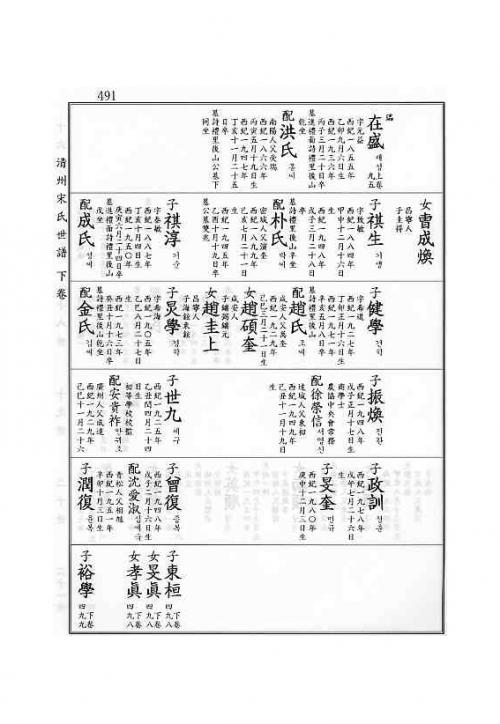 491
清州宋氏世譜 下卷
在盛
재성上卷
九五
字元益
西紀一八五五年
乙卯九月六日生
西紀一九三六年
丙子三月二十日卒
墓進禮面詩禮里後山
乾坐
配洪氏 홍씨
南陽人父受璣
西紀一八六六年
丙寅五月十九日生
西紀一九四七年
丁亥十一月二十五
日卒
墓詩禮里後山公墓下
同坐
女曺成煥
昌寧人
子圭得
子祺生 기생
字致敏
西紀一八八四年
甲申十二月十六日
生
西紀一九四八年
戊子三月二十八日
卒
墓詩禮里後山 辛坐
配朴氏 박씨
密城人父演奎
西紀一八九九年
己亥七月二十一日
生
西紀一九四五年
乙酉十月十九日卒
墓公墓雙兆
子祺淳 기순
字泰敏
西紀一八八七年
丁亥十月四日生
西紀一九五〇年
庚寅六月二十四日卒
墓進禮面詩禮里後山
戌坐
配成氏 성씨
子健學 건학
字希道
西紀一九二七年
丁卯正月八日生
西紀一九七一年
辛亥八月八日卒
墓詩禮里後山
配趙氏 조씨
咸安人父萬奎
西紀一九二九年
己巳三月二十一日生
女趙碩奎
咸安人
女趙圭上
子炅學 경학
字希海
西紀一九〇五年
乙巳八月二十七日
生
西紀一九七三年
癸丑十月十六日卒
墓詩禮里後山乾坐
配金氏 김씨
子振煥 진환
西紀一九四八年
戊子正月十七日生
商學士
農協中央會常務
配徐榮信 서영신
達城人父東相
西紀一九四九年
己丑十一月十九日
生
子世九 세구
西紀一九二五年
乙丑閏四月二十日
日生
初等學校校監
配安貴祚 안귀조
廣州人父成達
西紀一九二九年
己巳十一月二十六
子政訓 정훈
西紀一九七八年
戊午七月二十六日
生
子旻奎 민규
西紀一九八〇年
庚申十二月三日生
子曾復 증복
西紀一九四八年
戊子二月十六日生
配沈愛淑 심애숙
青松人父相雕
西紀一九五一年
辛卯十月三日生
子潤復 윤복
子東桓 下卷
四九八
女旻眞 下卷
四九八
女孝眞 下卷
四九八
子裕學 下卷
四九九